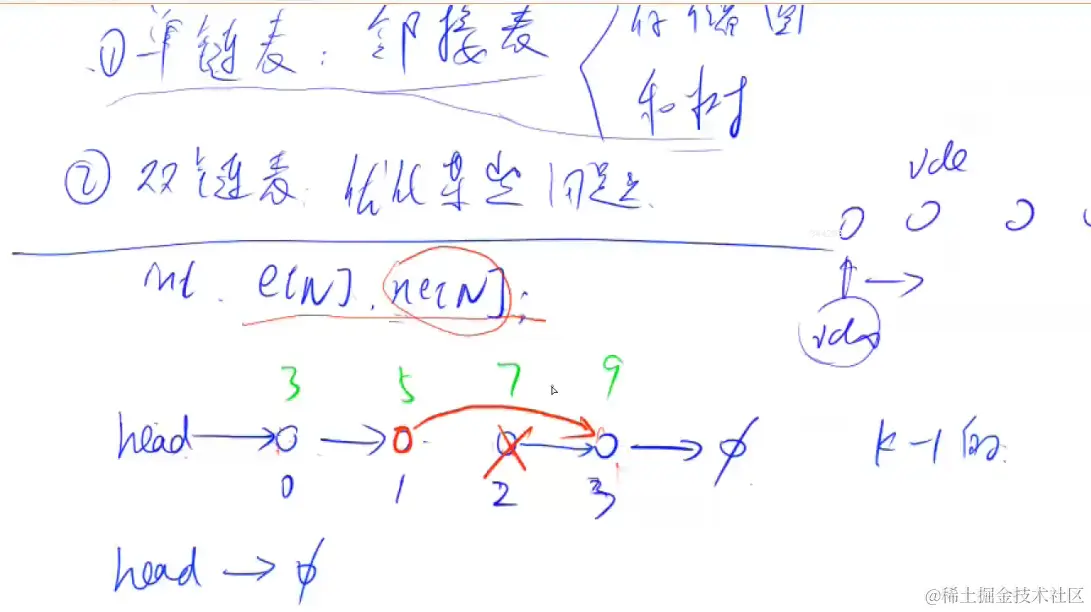 ① 单链表：邻接表 存储图
和树
② 双链表：优化某些问题
e[N], ne[N];
3 5 7 9
head → 0 → 0 0 → 0 → ∅
0 1 2 3
k-1的
head → ∅
@稀土掘金技术社区